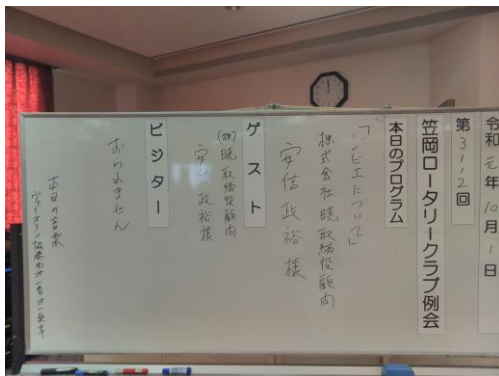 令和元年10月1日
第3112回
笠岡ロータリークラブ例会
本日のプログラム
「ジビエについて」
株式会社 暁 取締役顧問
安信 政裕 様
ゲスト
(株)暁 取締役顧問
安信 政裕 様
ビジター
おられません
本日の音楽